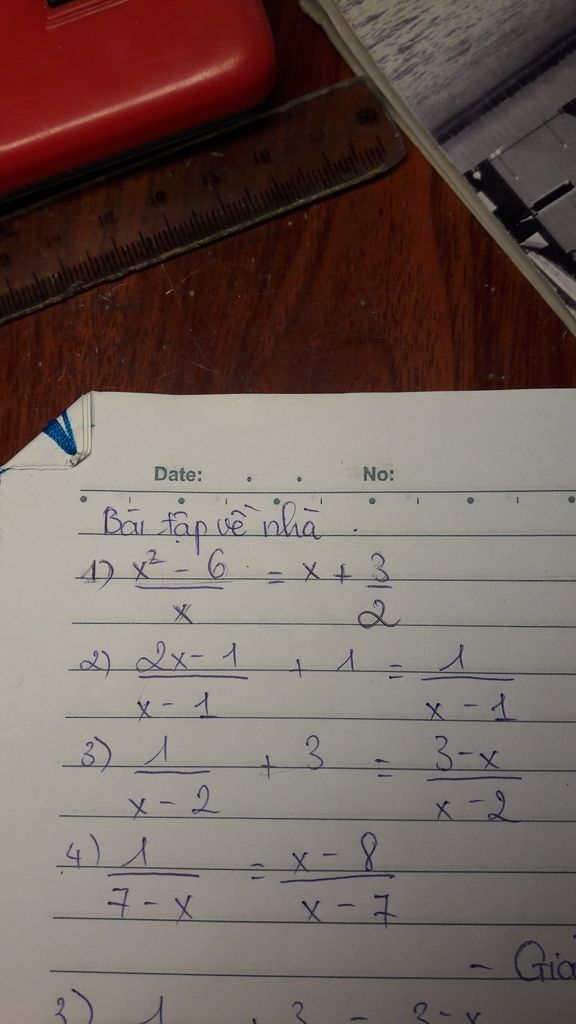 Date: . . No:
Bài tập về nhà.
1) (x² - 6)/x = x + 3/2
2) (2x - 1)/(x - 1) + 1 = 1/(x - 1)
3) 1/(x - 2) + 3 = (3 - x)/(x - 2)
4) 1/(7 - x) = (x - 8)/(x - 7)
-
3) 1 + 3 = 3-x